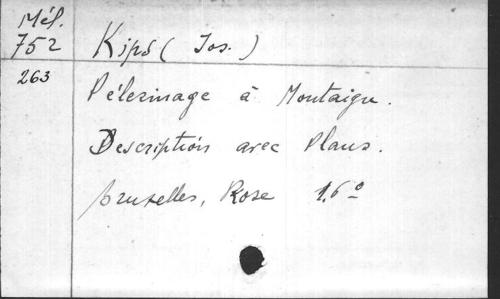 Mél.
752 Kips (Jos.)
263
Pélerinage à Montaigu.
Description avec Plans.
Bruxelles, Rose 16º